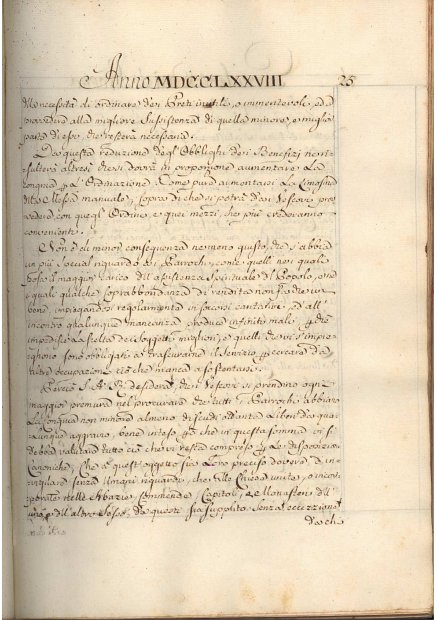 Anno MDCCLXXVIII 25
della necessità di ordinare dei Preti inutili, o immeritevoli, ed a
provvedere alla migliore Sussistenza di quella minore, e miglior
parte di essi, che resterà necessaria.
Da questa reduzione degl'Obblighi dei Benefizi ne ri-
sulterà altresì che si dovrà in proporzione aumentare La
Congrua per L'Ordinazione. Come pure aumentarsi La Limosina
della Messa manuale, sopra di che si potrà dai Vescovi pro-
vedere con quegl'Ordini, e quei mezzi, che più crederanno
convenienti.
Non è di minor conseguenza nemeno giusto, che s'abbia
un più special riguardo ai Parrochi, come quelli nei quali
posa il maggior carico dell'assistenza Spirituale del Popolo, ed i
quali qualche soprabbondanza di rendita non fa che un
bene, impiegandosi regolarmente in soccorsi caritativi, ed all'
incontro qualunque mancanza produce infiniti mali, per che
impedisce la scelta dei soggetti migliori, e quelli che vi s'impie-
ghino sono obbligati a trascurarne il servizio per cercare da
altre occupazioni ciò che manca a sostentarsi.
Perciò S. A. R. desidera, che i Vescovi si prendino ogni
maggior premura nel procurare che tutti i Parrochi abbiano
La Congrua non minore almeno di scudi ottanta Liberi da qua-
lunque aggravio, bene inteso, per che in questa somma si
debba valutare tutto ciò che vi resta compreso per Le disposizioni
Canoniche, Che a quest'oggetto sia Loro preciso dovere, d'in-
vigilare senza umani riguardi, che alle Chiese unite, o incor-
porate nelle Abbazie, Commende, Capitoli, e Monasteri dell'
uno, e dell'altro Sesso, da questi sia supplito senza eccezione
da ch